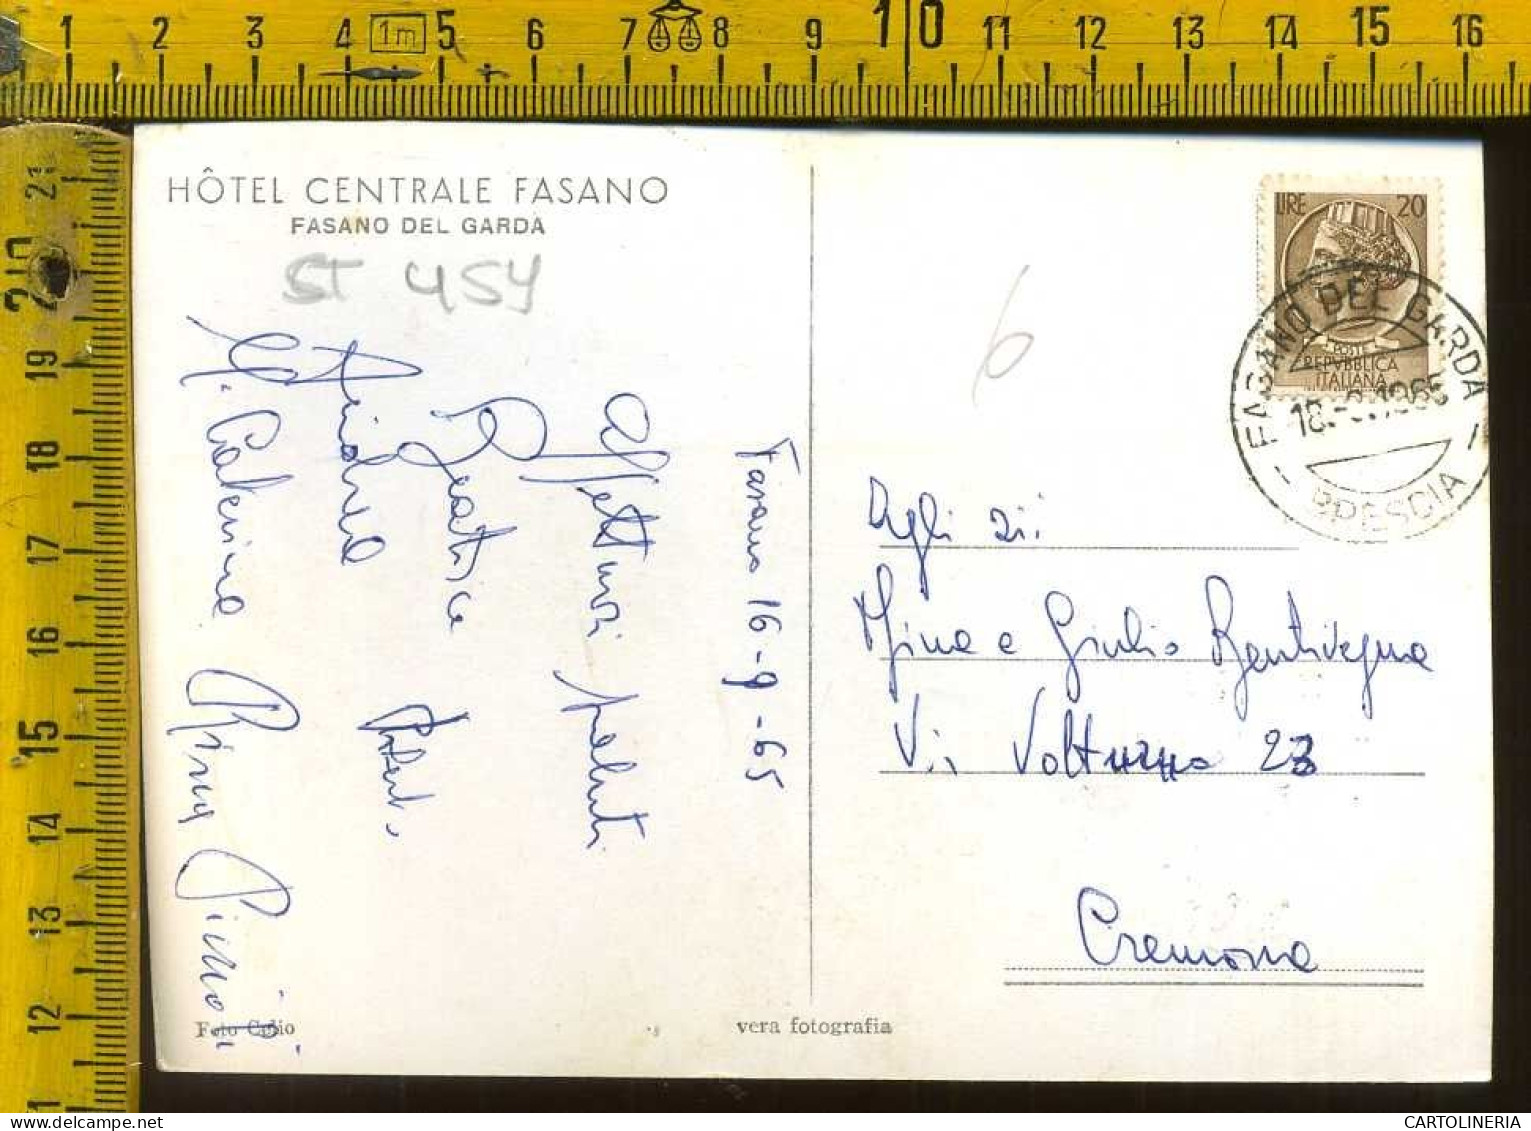 1 2 3 4 1m 5 6 7 8 9 10 11 12 13 14 15 16
21
20
19
18
17
16
15
14
13
12
HÔTEL CENTRALE FASANO
FASANO DEL GARDA
ST 454
6
LIRE 20
POSTE
REPVBBLICA
ITALIANA
FASANO DEL GARDA
BRESCIA
Fasano 16-9-65
affettuosi saluti
Beatrice
M. Caterina Rina
Agli zii
Mina e Giulio Bentivegna
Via Volturno 23
Cremona
Foto
vera fotografia
CARTOLINERIA